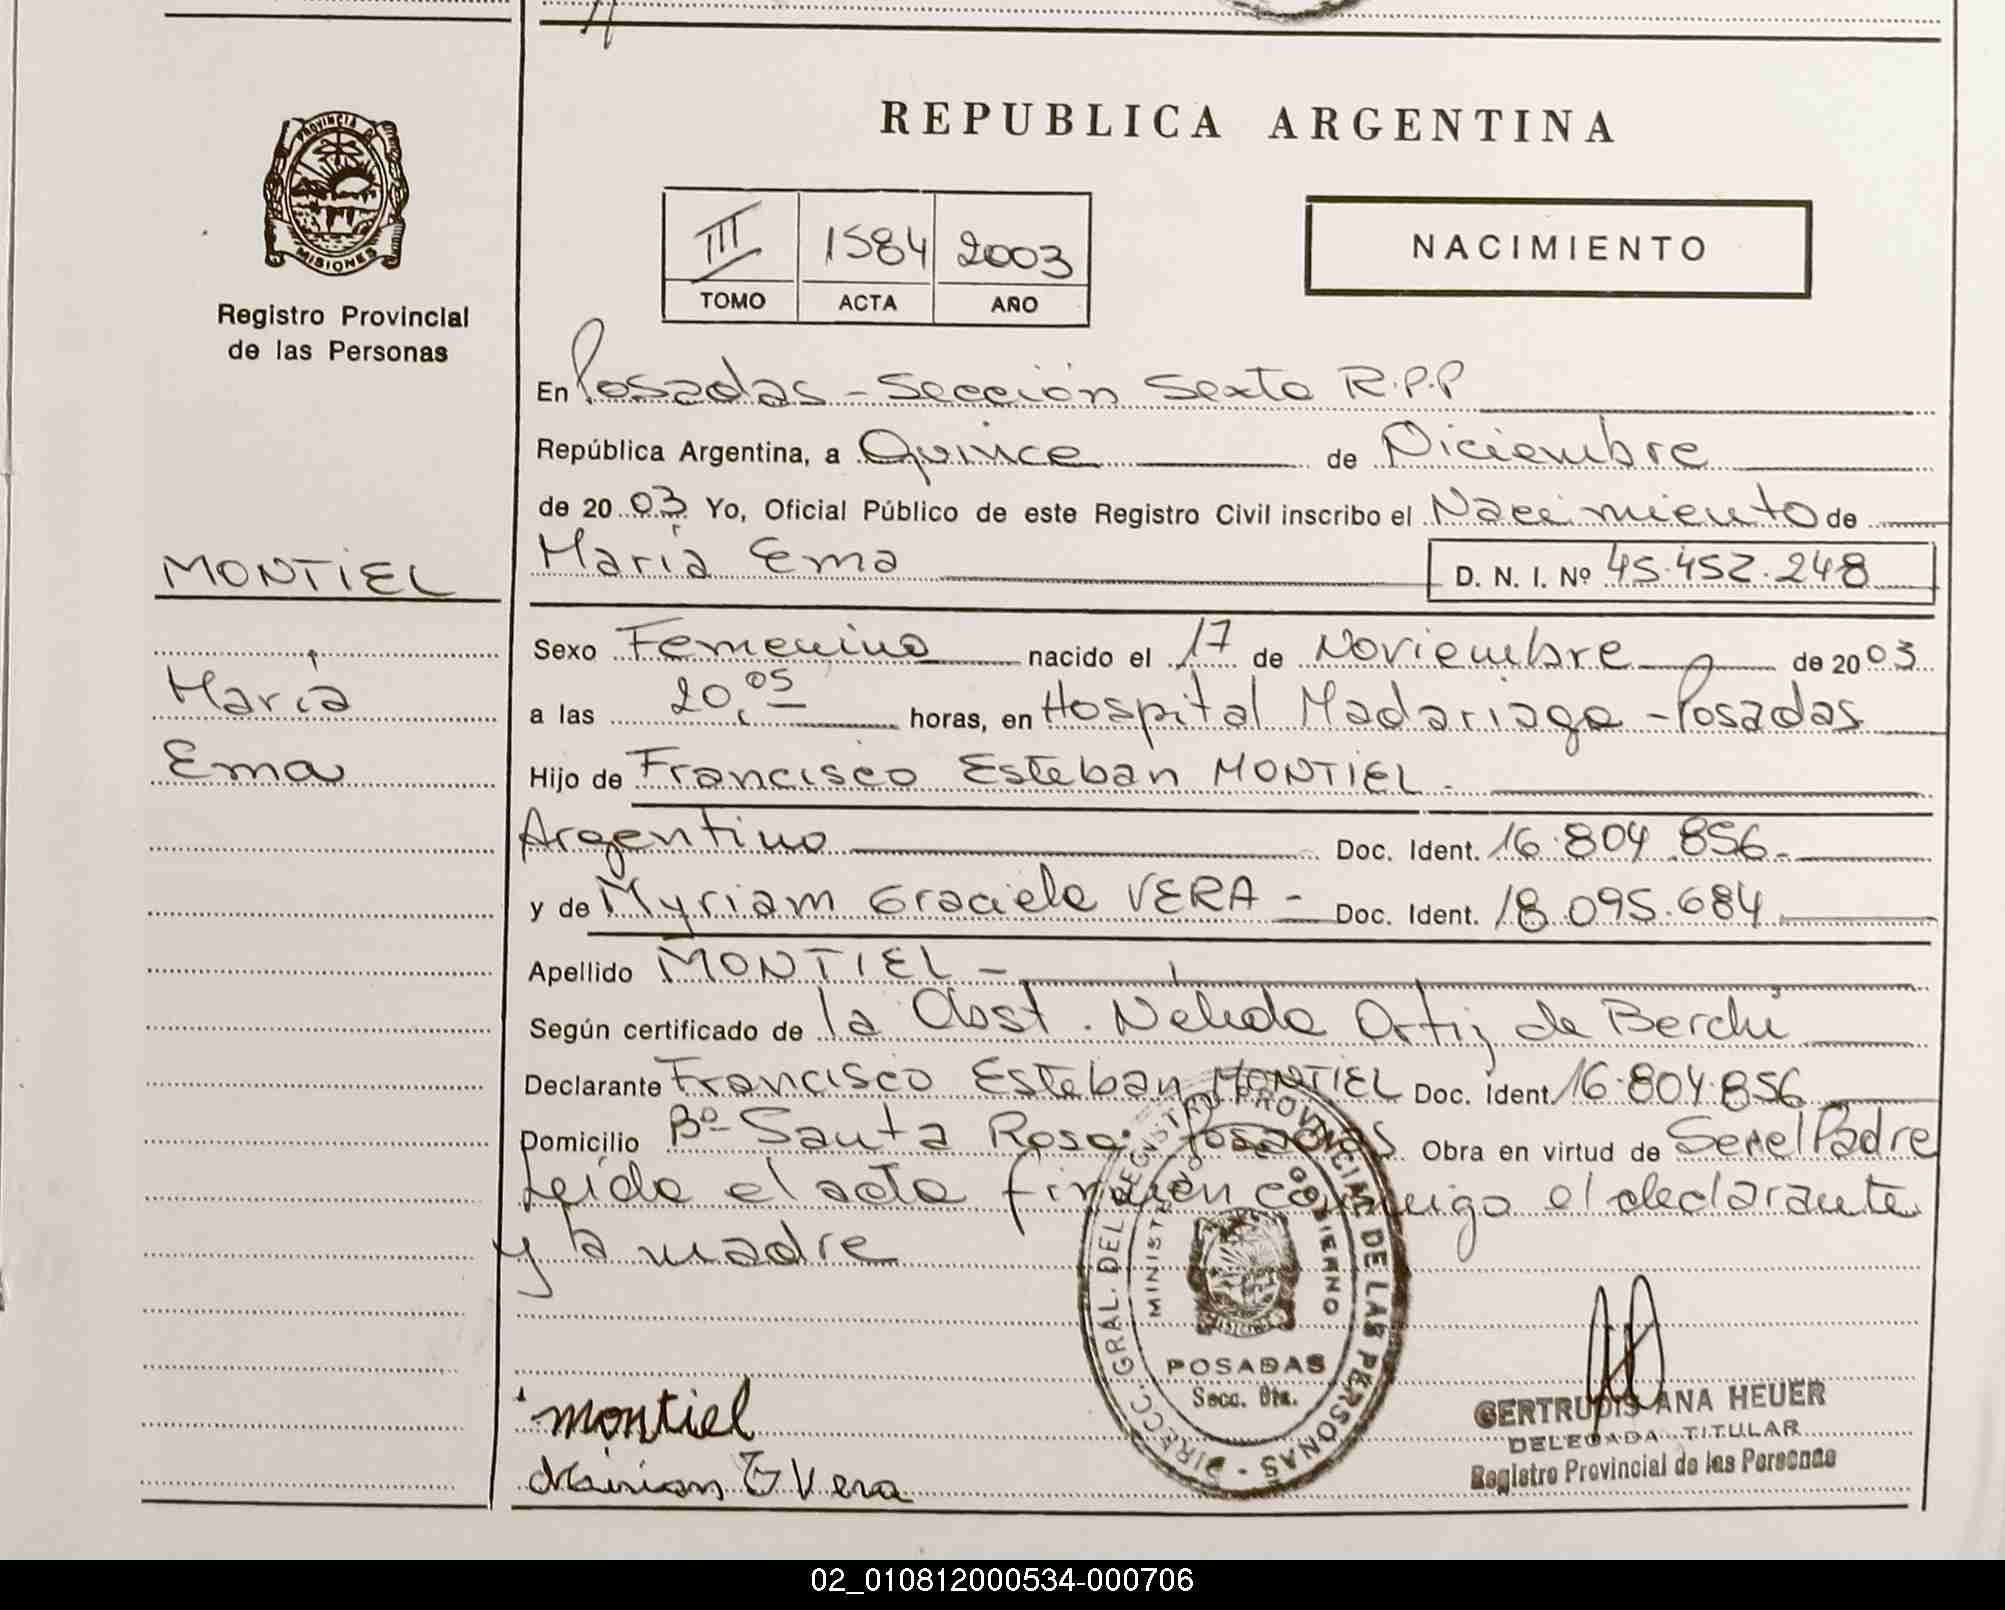 REPUBLICA ARGENTINA
PROVINCIA DE
MISIONES
Registro Provincial
de las Personas
III 1584 2003
TOMO ACTA AÑO
NACIMIENTO
En Posadas - Sección Sexta R.P.P
República Argentina, a Quince de Diciembre
de 20 03 Yo, Oficial Público de este Registro Civil inscribo el Nacimiento de
María Ema D. N. I. Nº 45.452.248
MONTIEL
María
Ema
Sexo Femenino nacido el 17 de Noviembre de 20 03
a las 20,05 horas, en Hospital Madariaga - Posadas
Hijo de Francisco Esteban MONTIEL -
Argentino Doc. Ident. 16.804.856-
y de Myriam Graciela VERA - Doc. Ident. 18.095.684
Apellido MONTIEL -
Según certificado de la Obst. Nélida Ortiz de Berchi
Declarante Francisco Esteban MONTIEL Doc. Ident 16.804.856
Domicilio Bº Santa Rosa. Posadas Obra en virtud de Ser el Padre
Leida el acta firman conmigo el declarante
y la madre
DIRECC. GRAL. DEL REGISTRO PROVINCIAL DE LAS PERSONAS -
MINISTERIO GOBIERNO
POSADAS
Secc. 6ta.
montiel
Mirian G Vera
GERTRUDIS ANA HEUER
DELEGADA TITULAR
Registro Provincial de las Personas
02_010812000534-000706